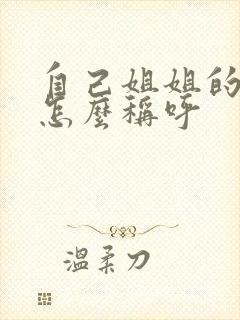 自己姐姐的
怎麼稱呼
溫柔刀